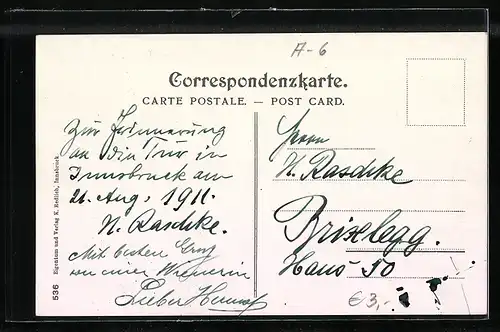 A-6
Correspondenzkarte.
CARTE POSTALE. — POST CARD.
Zur Erinnerung
an die Tour in
Innsbruck am
21. Aug. 1911.
H. Raschke.
Mit besten Gruß
von einer Wienerin
Lieber
Herrn
H. Raschke
Brixlegg.
Haus 50
€ 3,-
536 Eigentum und Verlag K. Redlich, Innsbruck.